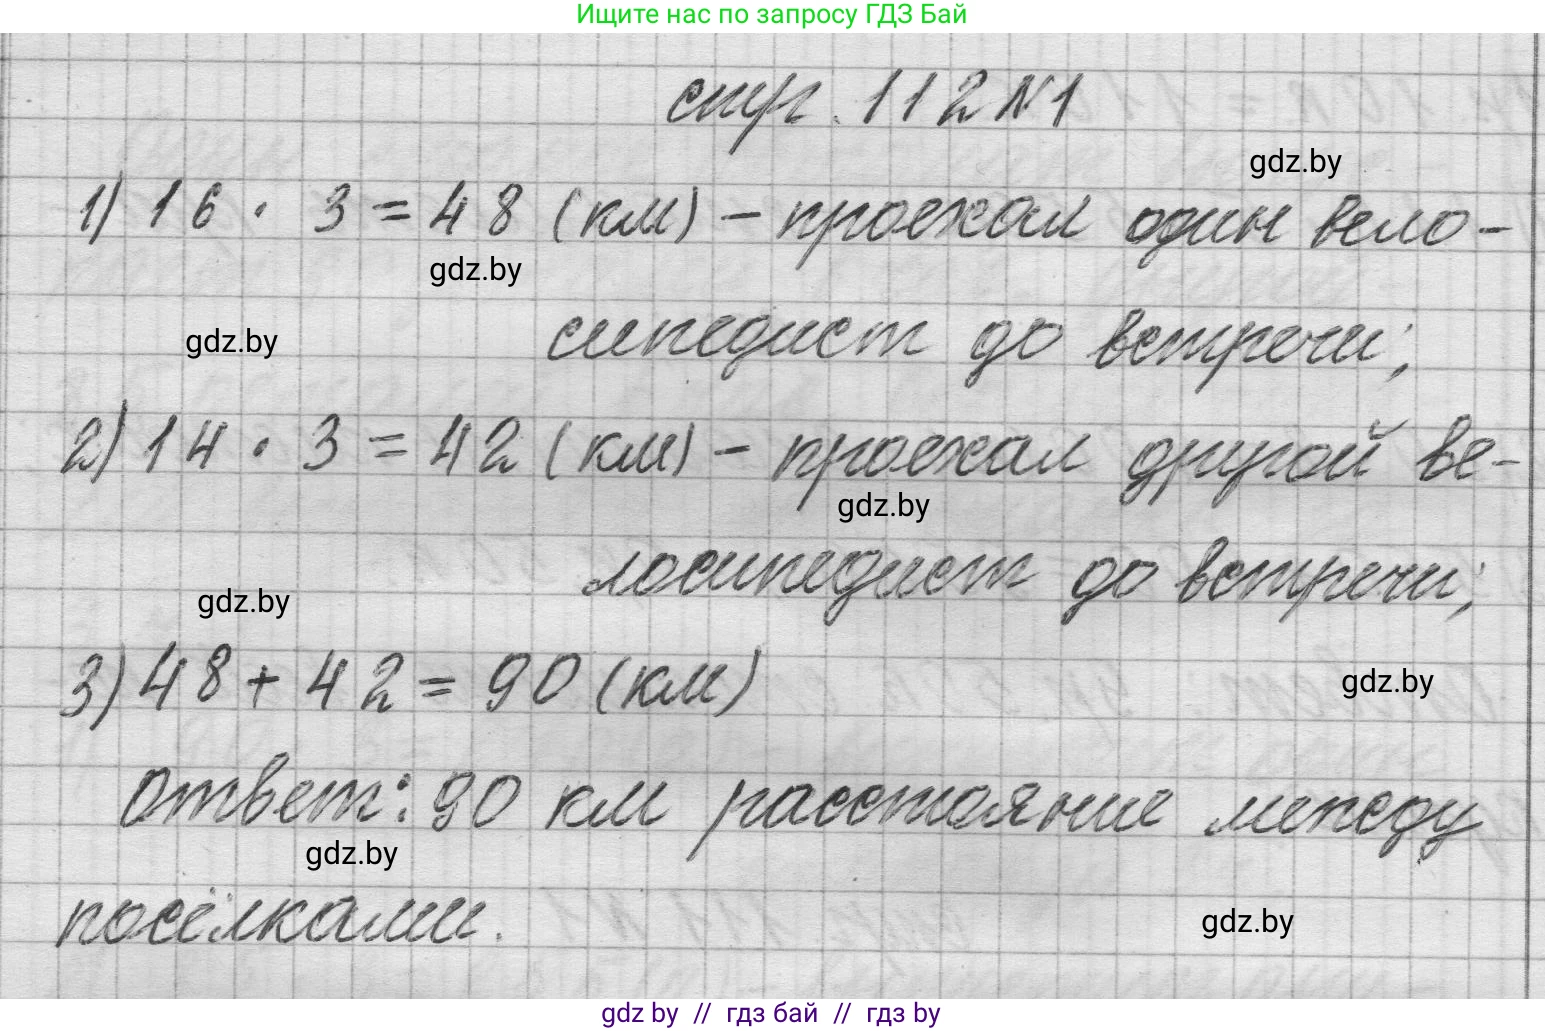 Ищите нас по запросу ГДЗ Бай
стр. 112 №1
gdz.by
1) 16 · 3 = 48 (км) - проехал один вело-
gdz.by
сипедист до встречи;
gdz.by
2) 14 · 3 = 42 (км) - проехал другой ве-
gdz.by
лосипедист до встречи;
gdz.by
3) 48 + 42 = 90 (км)
gdz.by
Ответ: 90 км расстояние между
gdz.by
посёлками.
gdz.by
gdz by // гдз бай // гдз by